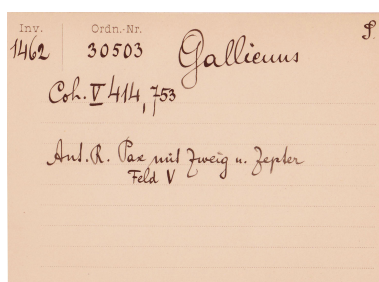 Inv. Ordn.-Nr. P.
1462 30503 Gallienus
Coh. V 414, 753
Ant. R. Pax mit Zweig u. Zepter
Feld V